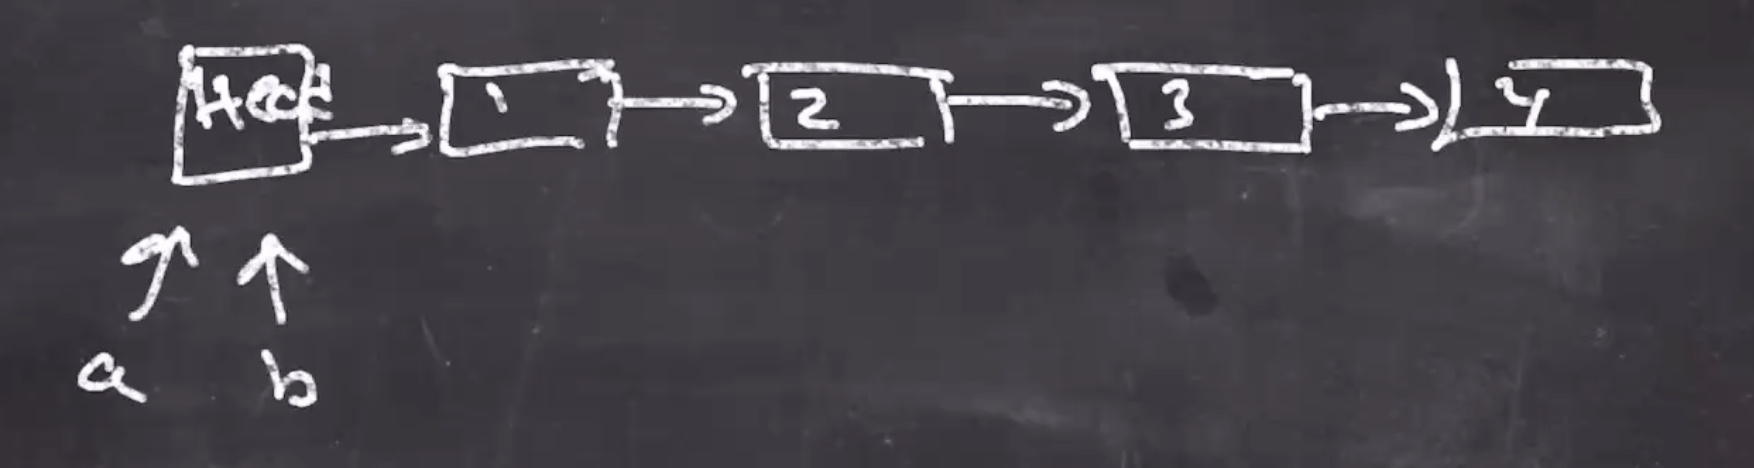 Head 1 2 3 4
a b